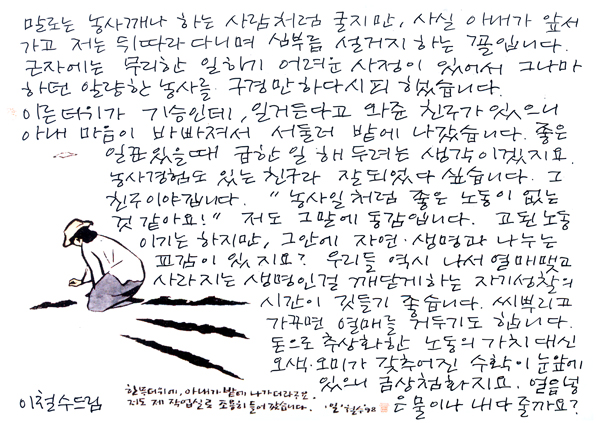 말로는 농사깨나 하는 사람처럼 굴지만, 사실 아내가 앞서
가고 저는 뒤따라 다니며 심부름 설거지 하는 꼴입니다.
근자에는 무리한 일하기 어려운 사정이 있어서 그나마
하던 알량한 농사를 구경만하다시피 했습니다.
이른더위가 기승인데, 일거든다고 와준 친구가 있으니
아내 마음이 바빠져서 서둘러 밭에 나갔습니다. 좋은
일꾼있을때 급한 일 해 두려는 생각이겠지요.
농사경험도 있는 친구라 잘되었다 싶습니다. 그
친구이야깁니다. "농사일처럼 좋은 노동이 없는
것 같아요!" 저도 그말에 동감입니다. 고된노동
이기는 하지만, 그안에 자연·생명과 나누는
교감이 있지요? 우리들 역시 나서 열매맺고
사라지는 생명인걸 깨닫게하는 자기성찰의
시간이 깃들기 좋습니다. 씨뿌리고
가꾸면 열매를 거두기도 합니다.
돈으로 추상화한 노동의 가치 대신
오색·오미가 갖추어진 수확이 눈앞에
있으니 금상첨화지요. 얼음넣
은물이나 내다 줄까요?
한뜻더위에, 아내가 밭에 나가더라구요.
저도 제 작업실로 조용히 들어 갔습니다.
'일' 철수 98
이철수드림